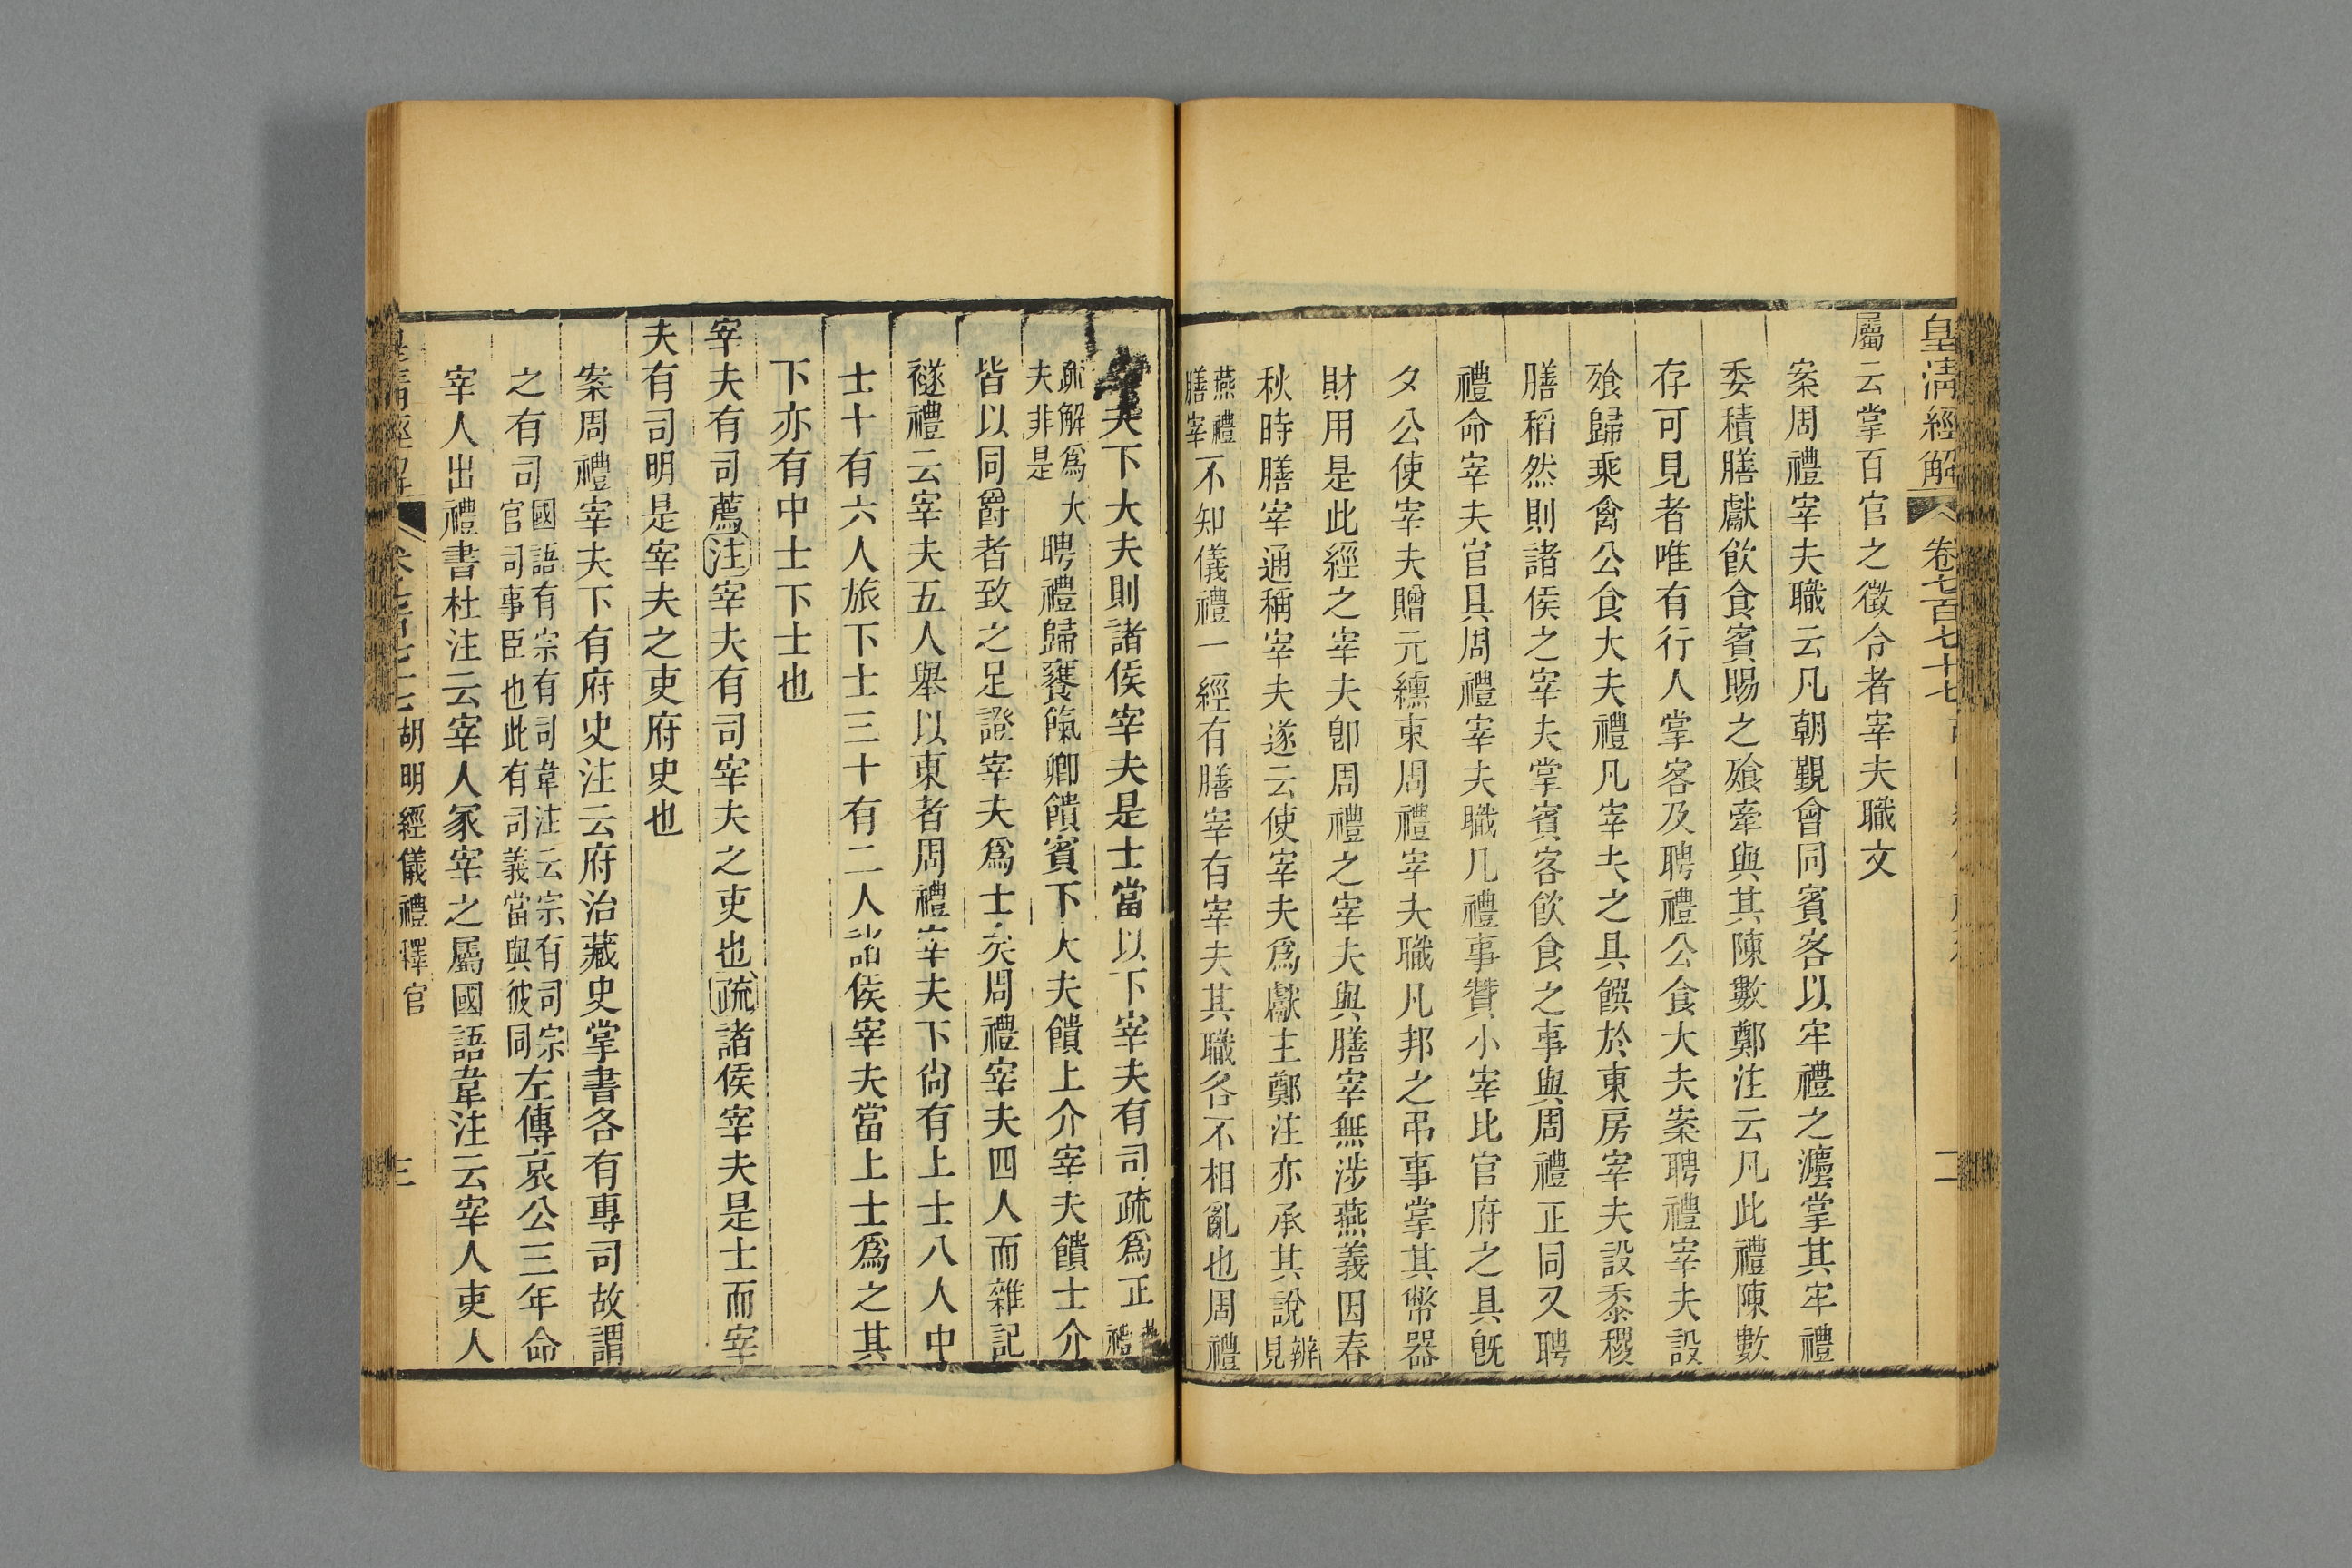 皇清經解 卷七百七十七 二
屬云掌百官之徵令者宰夫職文
案周禮宰夫職云凡朝覲會同賓客以牢禮之灋掌其牢禮
委積膳獻飮食賓賜之飱牽與其陳數鄭注云凡此禮陳數
存可見者唯有行人掌客及聘禮公食大夫案聘禮宰夫設
飱歸乘禽公食大夫禮凡宰夫之具饌於東房宰夫設黍稷
膳稻然則諸侯之宰夫掌賓客飮食之事與周禮正同又聘
禮命宰夫官具周禮宰夫職凡禮事贊小宰比官府之具旣
夕公使宰夫贈元纁束周禮宰夫職凡邦之弔事掌其幣器
財用是此經之宰夫卽周禮之宰夫與膳宰無涉燕義因春
秋時膳宰通稱宰夫遂云使宰夫爲獻主鄭注亦承其說辨見
燕禮膳宰不知儀禮一經有膳宰有宰夫其職各不相亂也周禮
宰夫下大夫則諸侯宰夫是士當以下宰夫有司疏爲正禮
疏解爲大夫非是聘禮歸饔餼卿饋賓下大夫饋上介宰夫饋士介
皆以同爵者致之足證宰夫爲士矣周禮宰夫四人而雜記
襚禮云宰夫五人舉以東者周禮宰夫下尙有上士八人中
士十有六人旅下士三十有二人諸侯宰夫當上士爲之其
下亦有中士下士也
宰夫有司薦注宰夫有司宰夫之吏也疏諸侯宰夫是士而宰
夫有司明是宰夫之吏府史也
案周禮宰夫下有府史注云府治藏史掌書各有專司故謂
之有司國語有宗有司韋注云宗有司宗官司事臣也此有司義當與彼同左傳哀公三年命
宰人出禮書杜注云宰人冢宰之屬國語韋注云宰人吏人
皇清經解 卷七百七十七 胡明經儀禮釋官 三